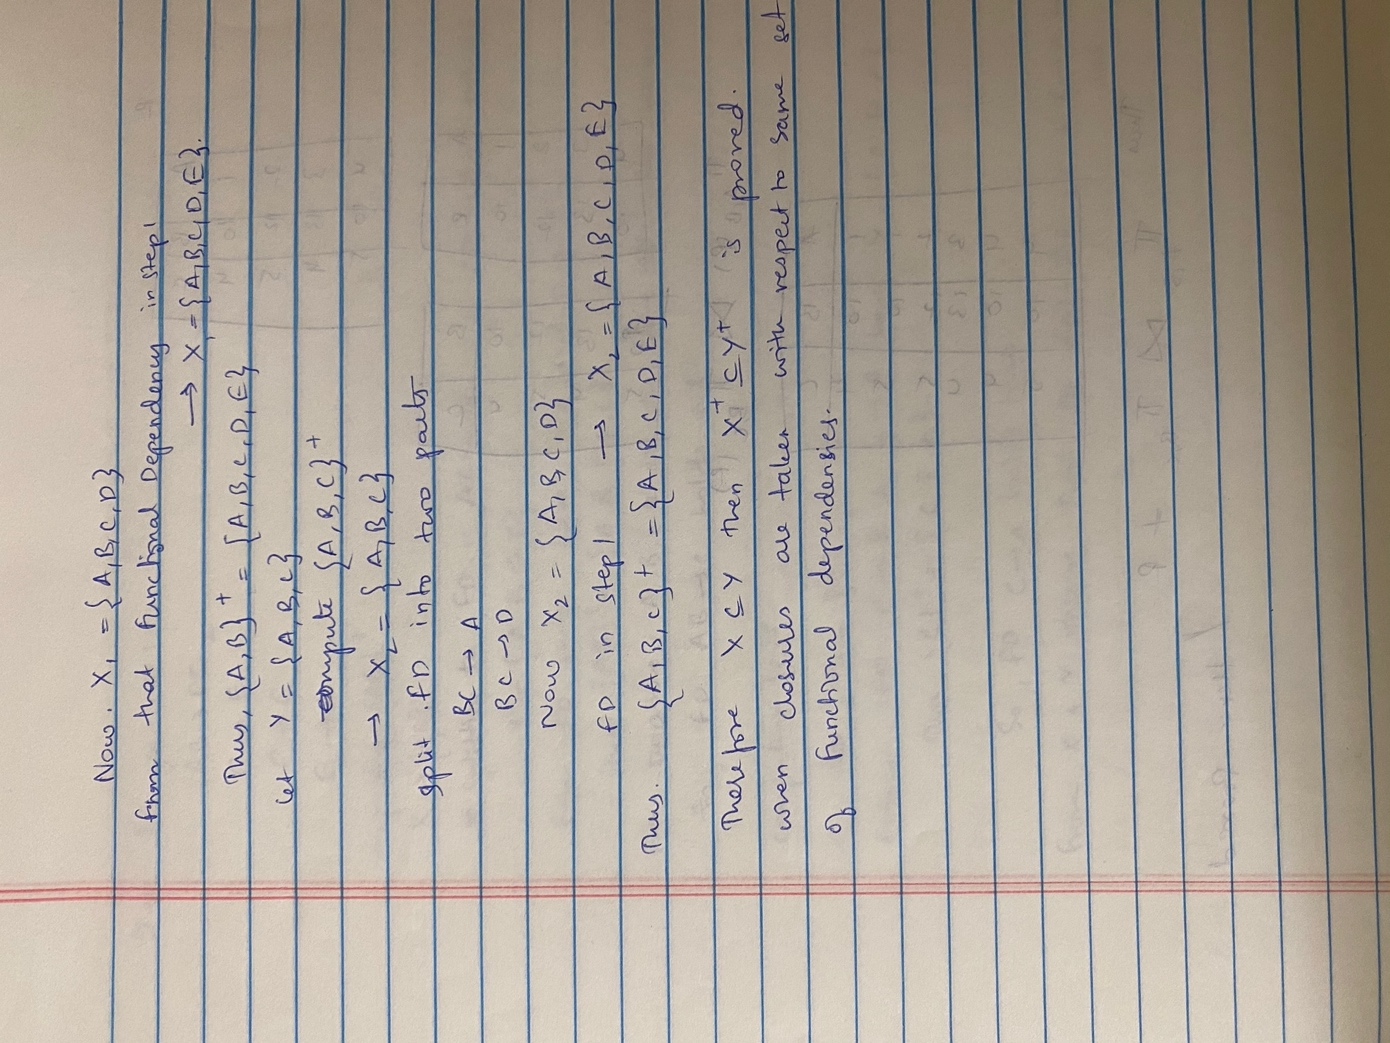 Now. X₁ = {A,B,C,D}
from that functional Dependency in step1
→ X₁ = {A,B,C,D,E}.
Thus, {A,B}⁺ = {A,B,C,D,E}
let Y = {A,B,C}
compute {A,B,C}⁺
→ X₂ = {A,B,C}
split FD into two parts.
BC → A
BC → D
Now X₂ = {A,B,C,D}
FD in step1 → X₂ = {A,B,C,D,E}
Thus. {A,B,C}⁺ = {A,B,C,D,E}
Therefore X ⊆ Y then X⁺ ⊆ Y⁺ is proved.
when closures are taken with respect to same set
of functional dependensies.